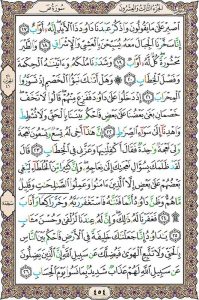 سورة ص
الجزء الثالث والعشرون
ٱصْبِرْ عَلَىٰ مَا يَقُولُونَ وَٱذْكُرْ عَبْدَنَا دَاوُۥدَ ذَا ٱلْأَيْدِ إِنَّهُۥٓ أَوَّابٌ ١٧
إِنَّا سَخَّرْنَا ٱلْجِبَالَ مَعَهُۥ يُسَبِّحْنَ بِٱلْعَشِىِّ وَٱلْإِشْرَاقِ ١٨ وَٱلطَّيْرَ
مَحْشُورَةً كُلٌّ لَّهُۥٓ أَوَّابٌ ١٩ وَشَدَدْنَا مُلْكَهُۥ وَءَاتَيْنَٰهُ ٱلْحِكْمَةَ
وَفَصْلَ ٱلْخِطَابِ ٢٠ ۞ وَهَلْ أَتَىٰكَ نَبَؤُا۟ ٱلْخَصْمِ إِذْ تَسَوَّرُوا۟
ٱلْمِحْرَابَ ٢١ إِذْ دَخَلُوا۟ عَلَىٰ دَاوُۥدَ فَفَزِعَ مِنْهُمْ قَالُوا۟ لَا تَخَفْ
خَصْمَانِ بَغَىٰ بَعْضُنَا عَلَىٰ بَعْضٍ فَٱحْكُم بَيْنَنَا بِٱلْحَقِّ وَلَا تُشْطِطْ
وَٱهْدِنَآ إِلَىٰ سَوَآءِ ٱلصِّرَٰطِ ٢٢ إِنَّ هَٰذَآ أَخِى لَهُۥ تِسْعٌ وَتِسْعُونَ نَعْجَةً
وَلِىَ نَعْجَةٌ وَٰحِدَةٌ فَقَالَ أَكْفِلْنِيهَا وَعَزَّنِى فِى ٱلْخِطَابِ ٢٣ قَالَ
لَقَدْ ظَلَمَكَ بِسُؤَالِ نَعْجَتِكَ إِلَىٰ نِعَاجِهِۦ وَإِنَّ كَثِيرًا مِّنَ ٱلْخُلَطَآءِ لَيَبْغِى
بَعْضُهُمْ عَلَىٰ بَعْضٍ إِلَّا ٱلَّذِينَ ءَامَنُوا۟ وَعَمِلُوا۟ ٱلصَّٰلِحَٰتِ وَقَلِيلٌ
مَّا هُمْ وَظَنَّ دَاوُۥدُ أَنَّمَا فَتَنَّٰهُ فَٱسْتَغْفَرَ رَبَّهُۥ وَخَرَّ رَاكِعًا وَأَنَابَ ۩ ٢٤
فَغَفَرْنَا لَهُۥ ذَٰلِكَ وَإِنَّ لَهُۥ عِندَنَا لَزُلْفَىٰ وَحُسْنَ مَـَٔابٍ
٢٥ يَٰدَاوُۥدُ إِنَّا جَعَلْنَٰكَ خَلِيفَةً فِى ٱلْأَرْضِ فَٱحْكُم بَيْنَ ٱلنَّاسِ
بِٱلْحَقِّ وَلَا تَتَّبِعِ ٱلْهَوَىٰ فَيُضِلَّكَ عَن سَبِيلِ ٱللَّهِ إِنَّ ٱلَّذِينَ يَضِلُّونَ
عَن سَبِيلِ ٱللَّهِ لَهُمْ عَذَابٌ شَدِيدٌۢ بِمَا نَسُوا۟ يَوْمَ ٱلْحِسَابِ ٢٦
٤٥٤